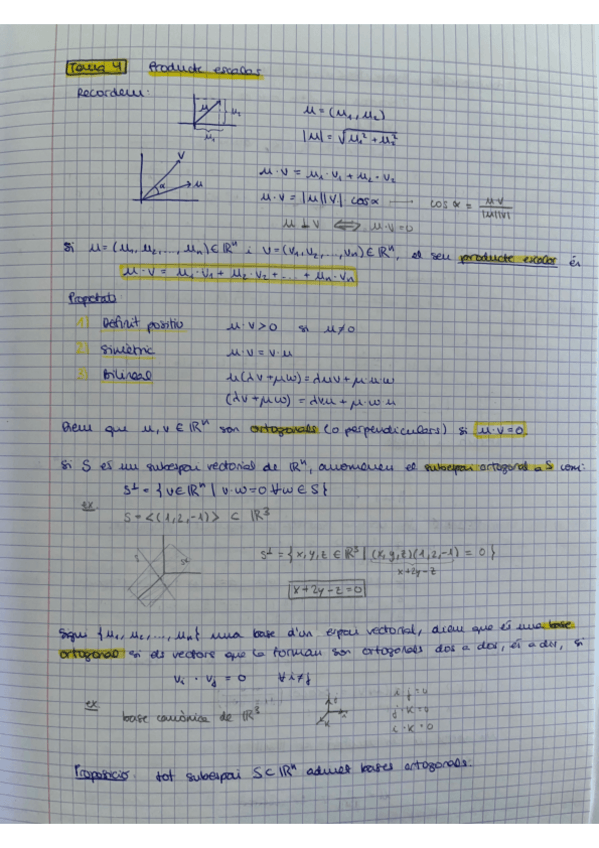 Tema 4 Producte escalar
Recordem:
u u₂ u = (u₁, u₂)
u₁ |u| = √u₁² + u₂²
v u · v = u₁ · v₁ + u₂ · v₂
α u u · v = |u||v| cosα → cos α = u·v / |u||v|
u ⊥ v ⟺ u · v = 0
Si u = (u₁, u₂, ..., uₙ) ∈ ℝⁿ i v = (v₁, v₂, ..., vₙ) ∈ ℝⁿ, el seu producte escalar és
u · v = u₁ · v₁ + u₂ · v₂ + ... + uₙ · vₙ
Propietats
1) Definit positiu u · v > 0 si u ≠ 0
2) Simètric u · v = v · u
3) Bilineal u(λv + μw) = λuv + μ · u · w
(λv + μw) = λvu + μ · w · u
Diem que u, v ∈ ℝⁿ són ortogonals (o perpendiculars) si u · v = 0
Si S és un subespai vectorial de ℝⁿ, anomenem el subespai ortogonal a S com:
S⊥ = { v ∈ ℝⁿ | v · w = 0 ∀w ∈ S }
ex
S = <(1, 2, -1)> ⊂ ℝ³
S⊥ = { x, y, z ∈ ℝ³ | (x, y, z)(1, 2, -1) = 0 }
x + 2y - z
x + 2y - z = 0
Sigui {u₁, u₂, ..., uₙ} una base d'un espai vectorial, diem que és una base
ortogonal si els vectors que la formen són ortogonals dos a dos, és a dir, si
vᵢ · vⱼ = 0 ∀ i ≠ j
ex
base canònica de ℝ³
i · j = 0
j · k = 0
i · k = 0
Proposició: tot subespai S ⊂ ℝⁿ admet bases ortogonals.